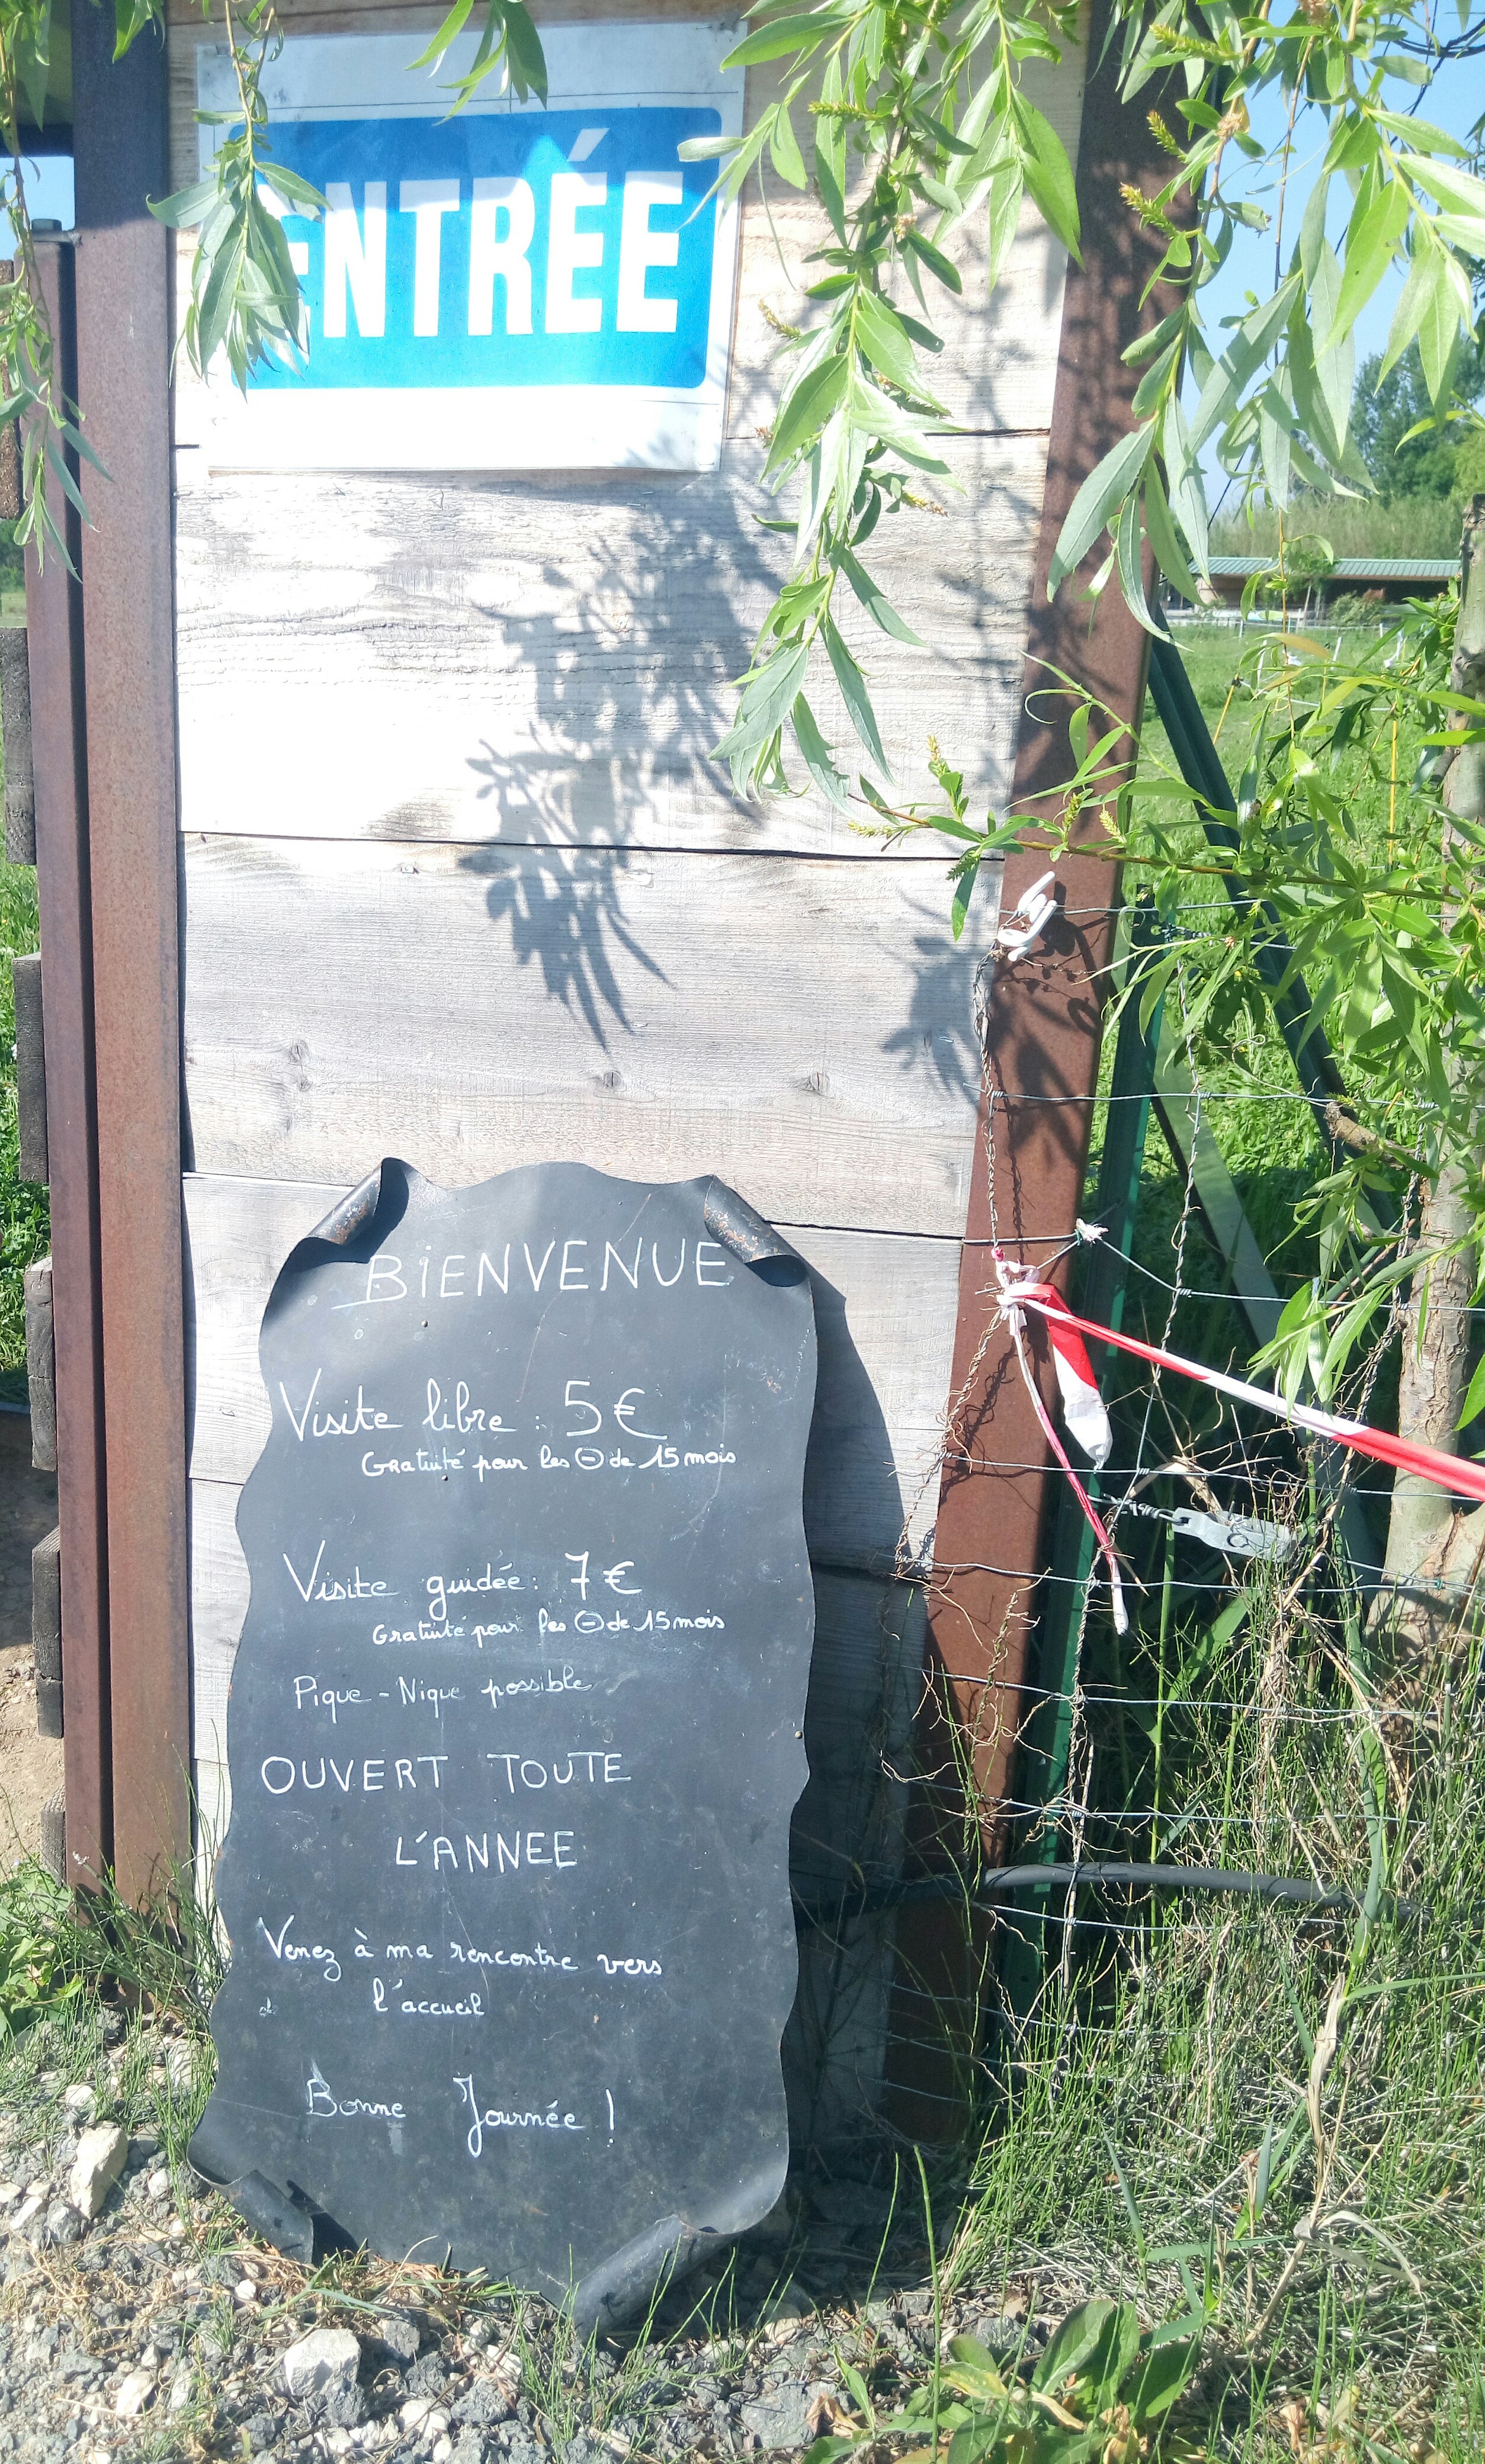 ENTRÉE
BiENVENUE
Visite libre : 5€
Gratuité pour les ⊖ de 15 mois
Visite guidée : 7€
Gratuité pour les ⊖ de 15 mois
Pique - Nique possible
OUVERT TOUTE
L'ANNEE
Venez à ma rencontre vers
l'accueil
Bonne Journée !